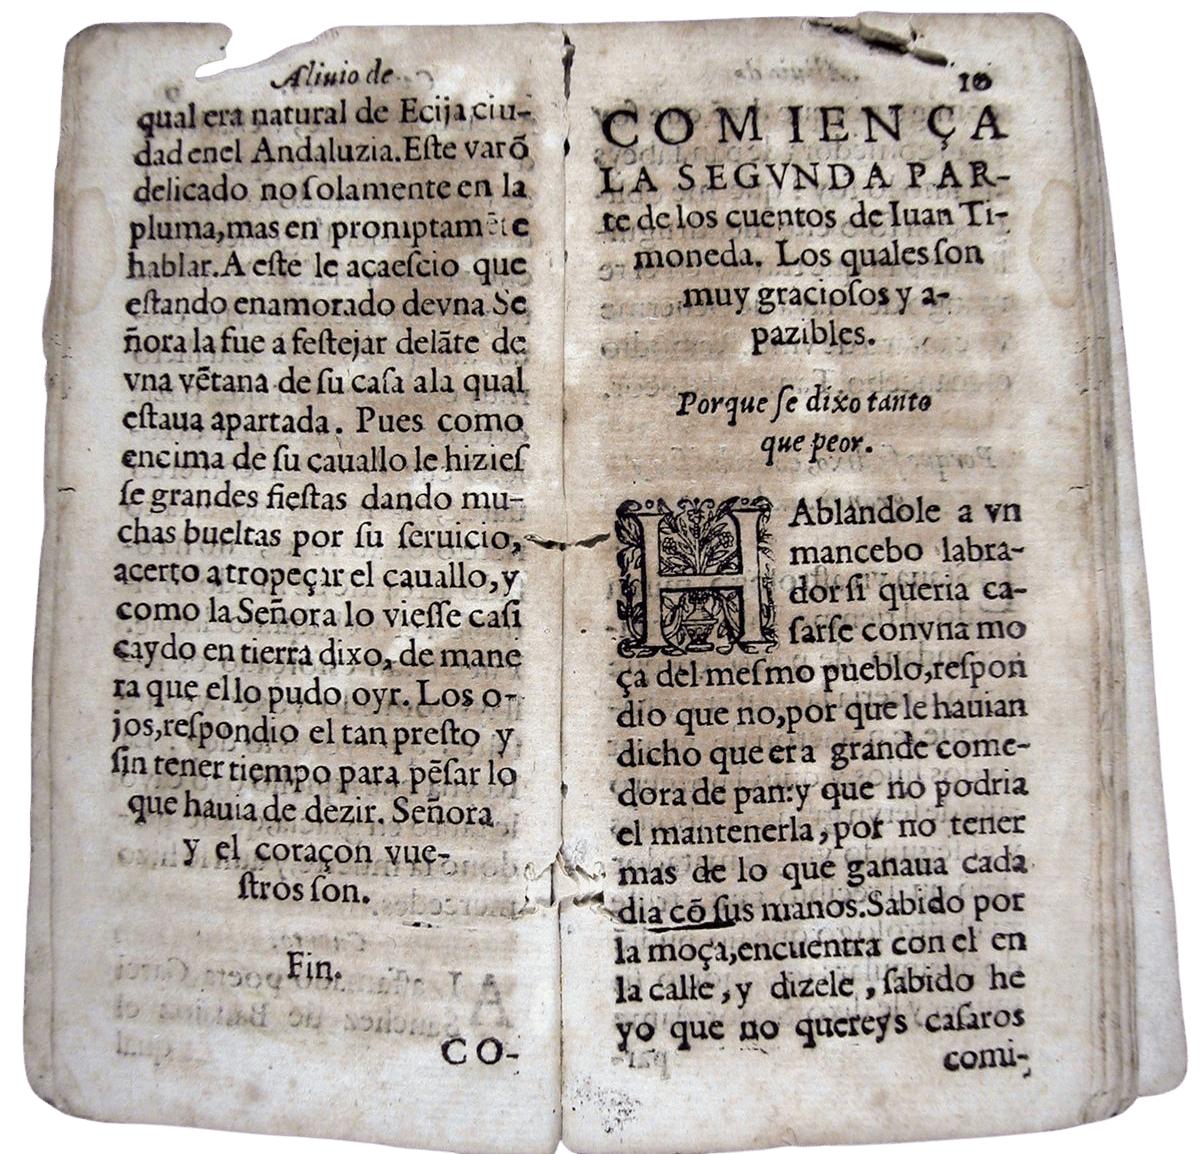 Aliuio de
qual era natural de Ecija ciu-
dad enel Andaluzia. Este varõ
delicado no ſolamente en la
pluma, mas en promptamẽte
hablar. A eſte le acaeſcio que
eſtando enamorado devna Se
ñora la fue a feſtejar delãte de
vna vẽtana de ſu caſa ala qual
eſtaua apartada. Pues como
encima de ſu cauallo le hizieſ
ſe grandes fieſtas dando mu-
chas bueltas por ſu ſeruicio,
acerto a tropeçar el cauallo, y
como la Señora lo vieſſe caſi
caydo en tierra dixo, de mane
ra que el lo pudo oyr. Los o-
jos, reſpondio el tan preſto y
ſin tener tiempo para pẽſar lo
que hauia de dezir. Señora
y el coraçon vue-
ſtros ſon.
Fin.
CO-
10
COMIENÇA
LA SEGVNDA PAR-
te de los cuentos de Iuan Ti-
moneda. Los quales ſon
muy gracioſos y a-
pazibles.
Porque ſe dixo tanto
que peor.
HAblandole a vn
mancebo labra-
dor ſi queria ca-
ſarſe convna mo
ça del meſmo pueblo, reſpon
dio que no, por que le hauian
dicho que era grande come-
dora de pan: y que no podria
el mantenerla, por no tener
mas de lo que ganaua cada
dia cõ ſus manos. Sabido por
la moça, encuentra con el en
la calle, y dizele, ſabido he
yo que no quereys caſaros
comi-